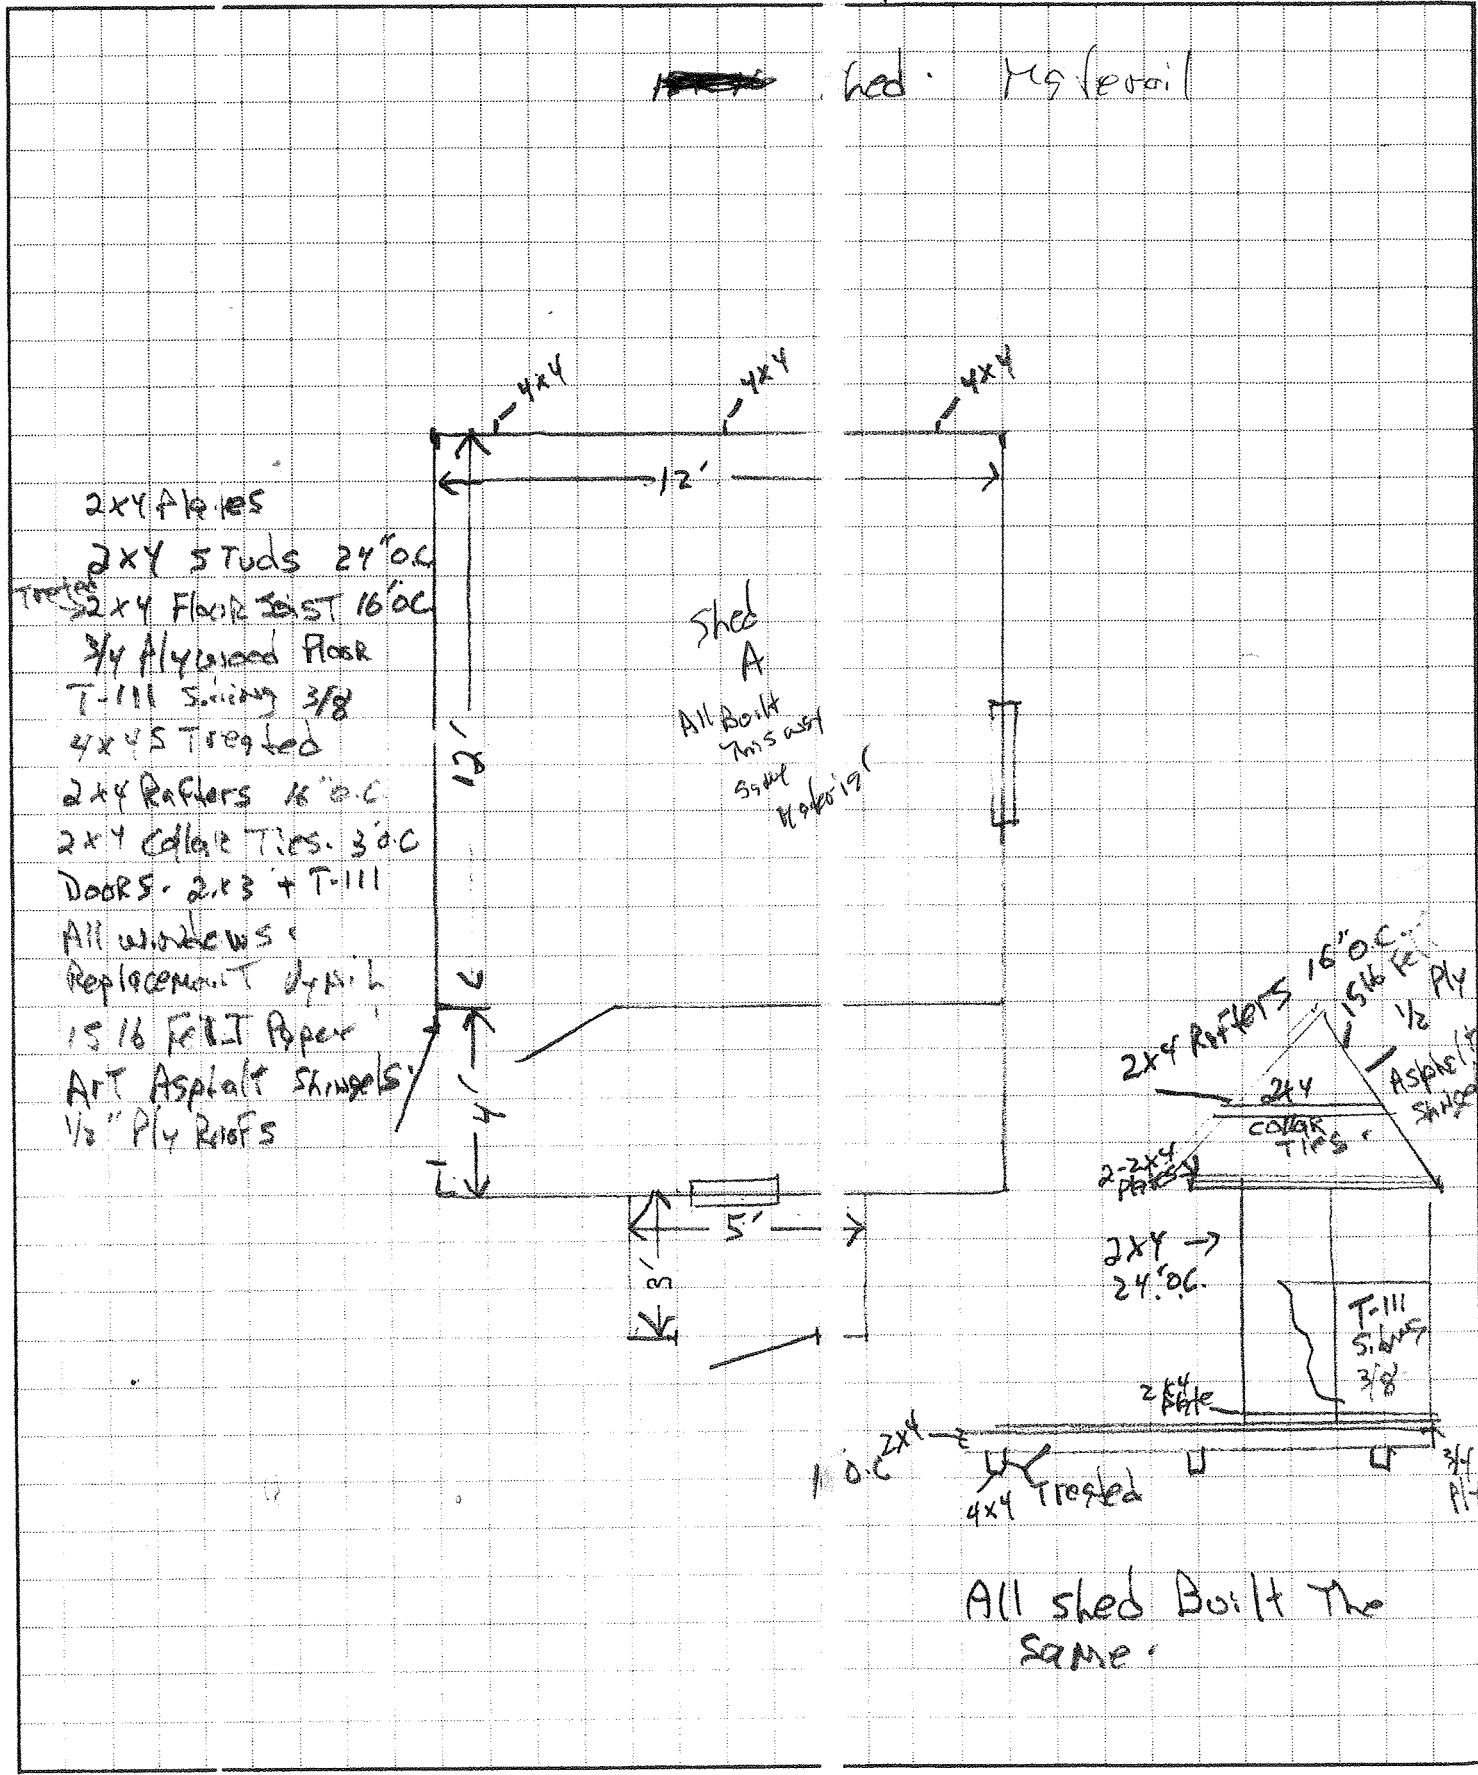 hed. Materoil
4x4
4x4
4x4
12'
2x4 Plates
2x4 STuds 24"O.C
Treted
2x4 Floor JoisT 16"OC
3/4 Plywood FlooR
T-111 Siding 3/8
4x4s Treated
2x4 Rafters 16"O.C
2x4 CollaR Ties. 3'O.C
DooRS. 2x3 + T-111
All windows
ReplacemenT
15 lb FelT Paper
ArT Asphalt Shingels
1/2" Ply RooFs
Shed
A
All Built
This way
Same
Material
12'
4'
5'
3'
2x4 Rafters 16"O.C.
15 lb Fel
1/2 Ply
Asphalt
Shingel
2x4
collaR
Ties.
2-2x4
plates
2x4
24"OC.
T-111
Siding
3/8
2x4
plate
O.C 2x4
4x4 Treated
3/4
Ply
All shed Built The
Same.